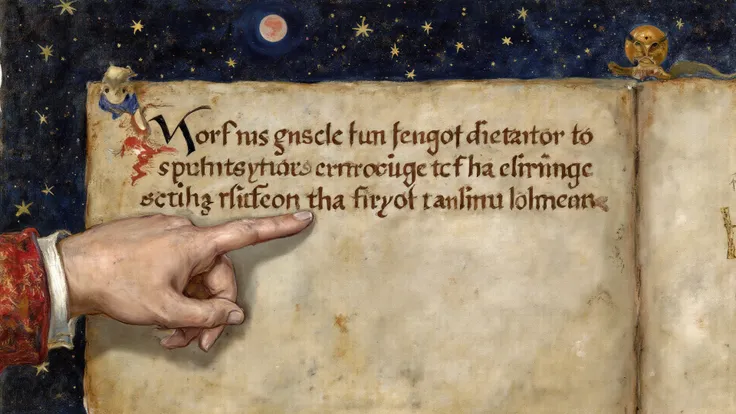 Worf nis gnscle fun fengof dietaitor to
spuhitsytiors errrociuge tcf ha elirringe
sctihg rlidfeon tha firyof tanlinu lolmean